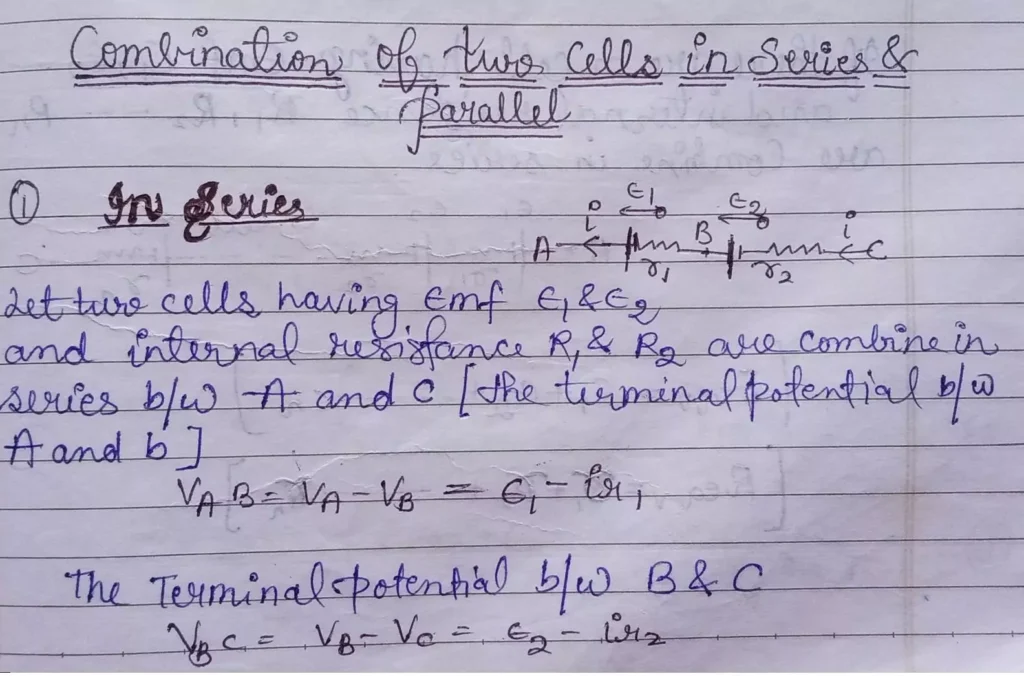 Combination of two Cells in Series &
Parallel
① In Series
ε1 ε2
i i
A B C
r1 r2
Let two cells having Emf ε1 & ε2
and internal resistance R1 & R2 are combine in
series b/w A and C [the terminal potential b/w
A and b]
VAB = VA - VB = ε1 - ir1
The Terminal potential b/w B & C
VBC = VB - VC = ε2 - ir2